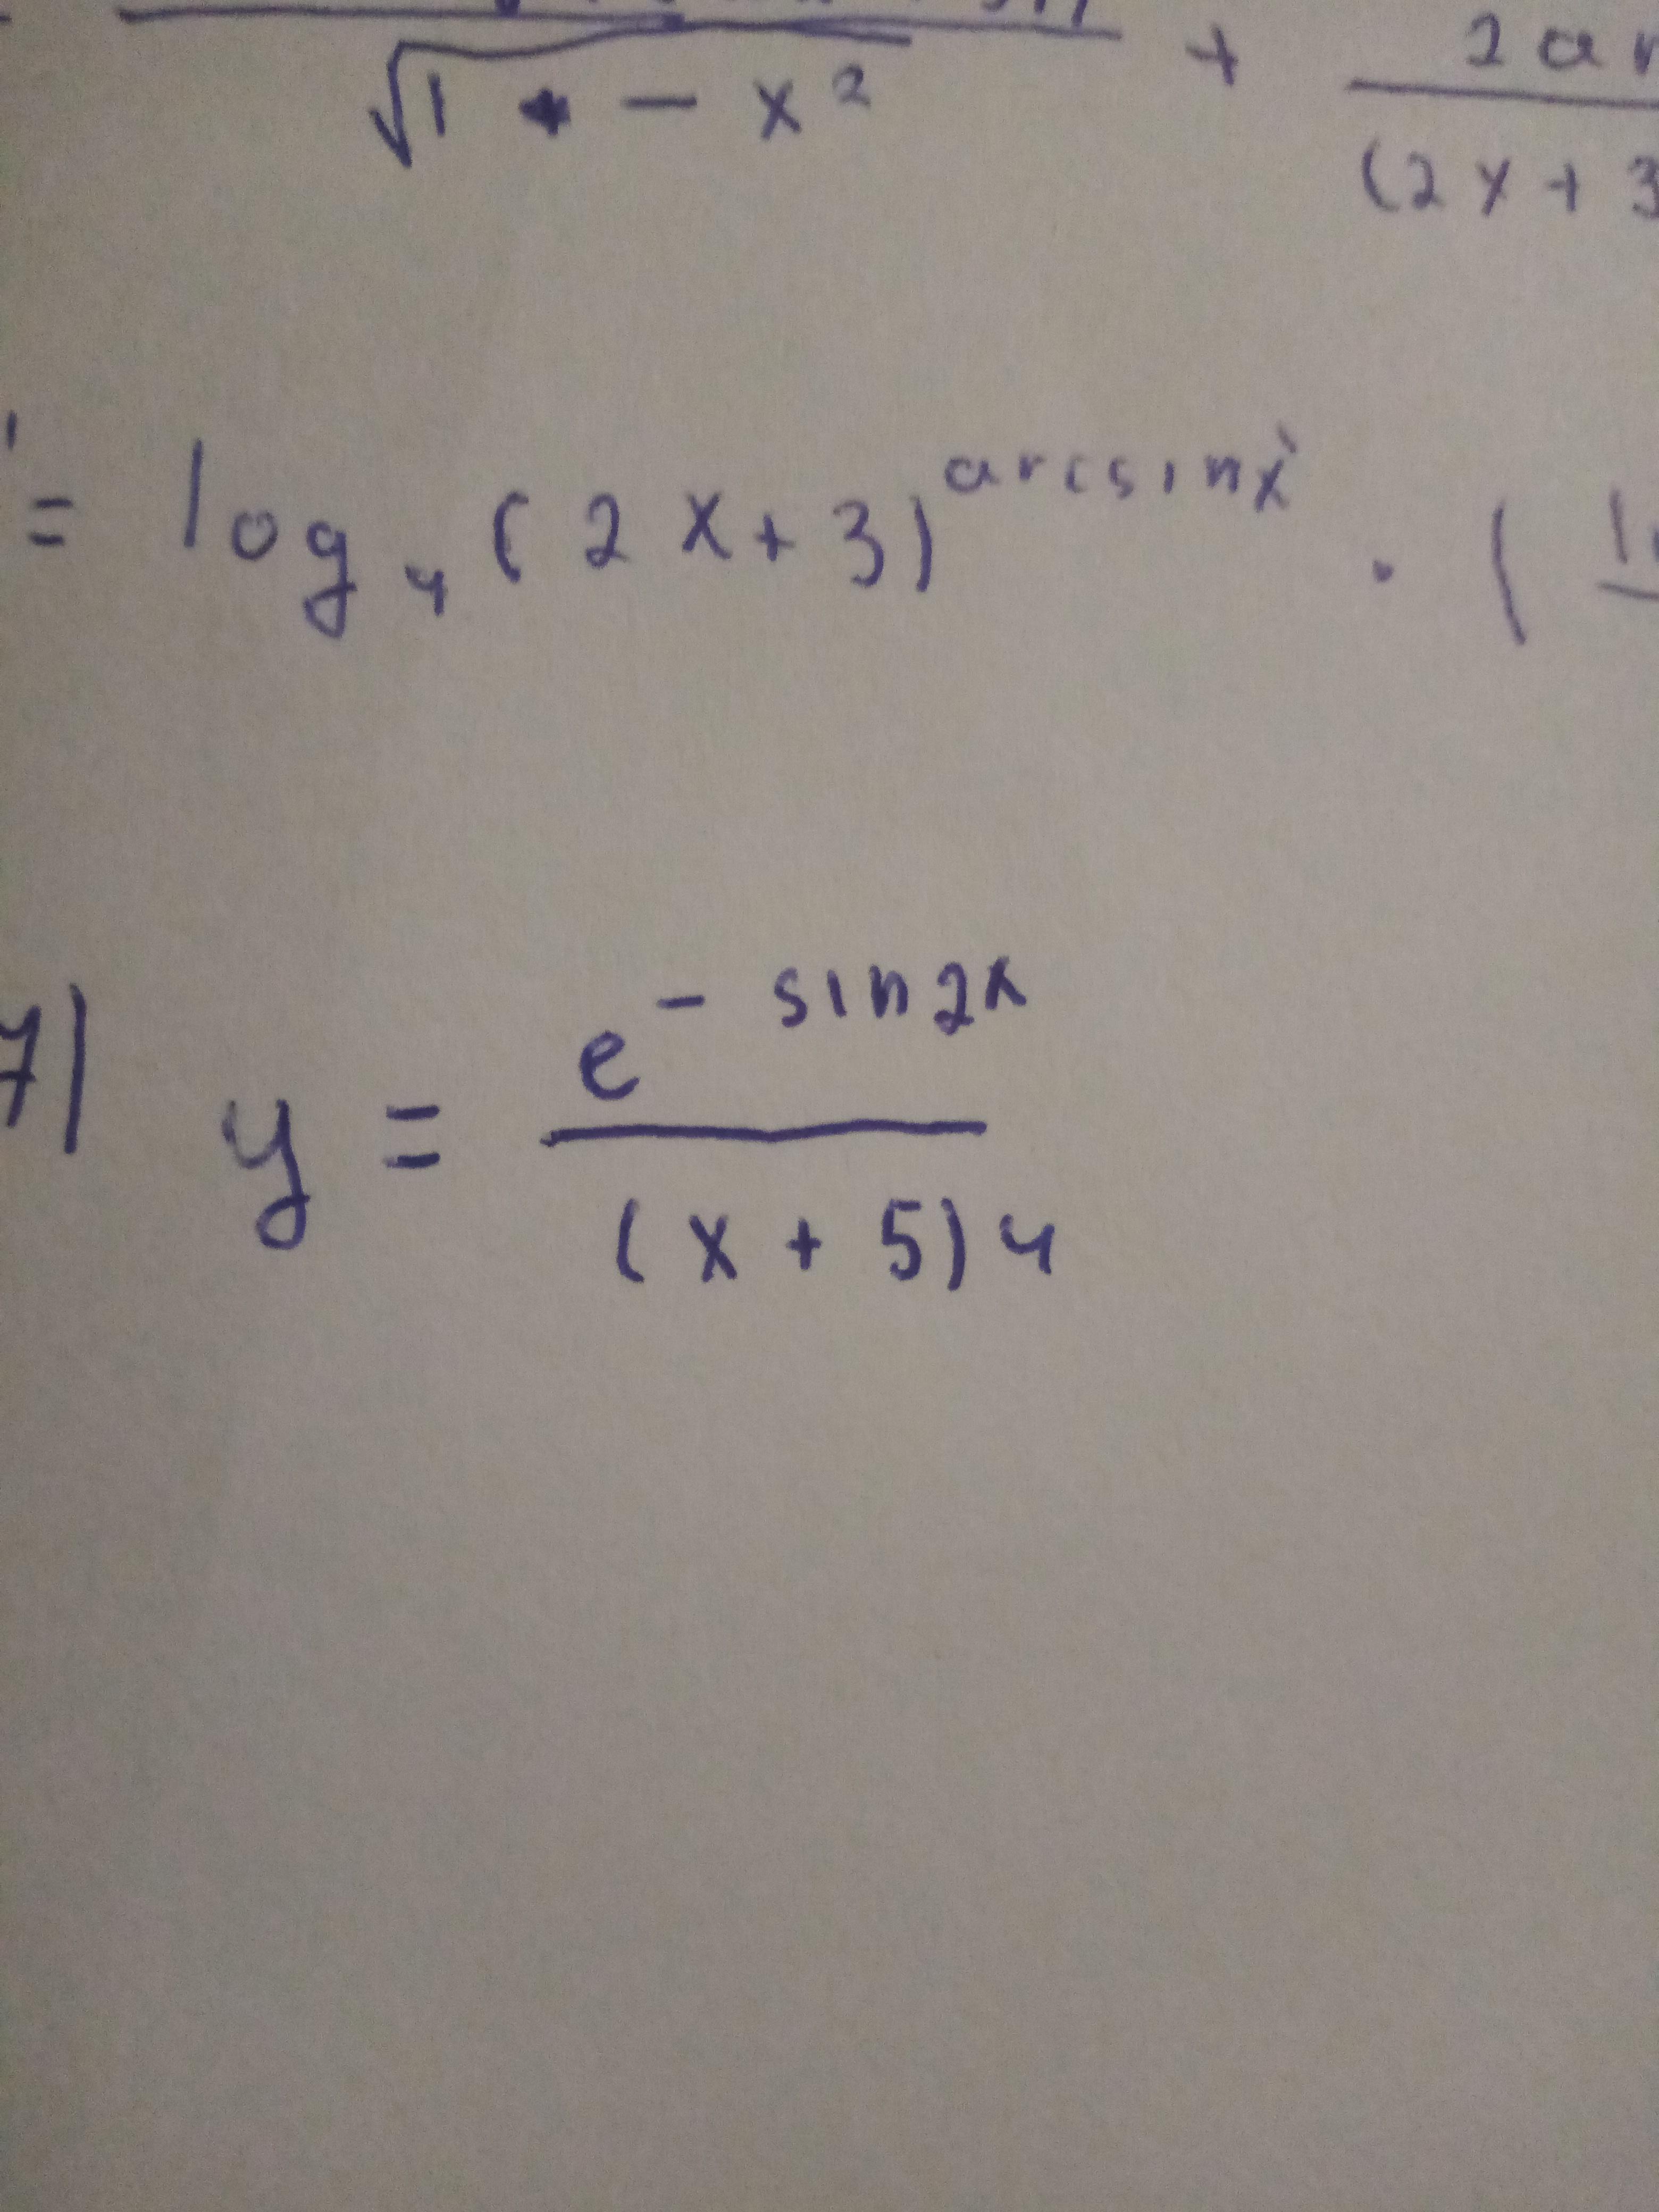 √1 - x² + 2
(2x + 3
' = log₄(2x+3)^arcsinx · (
7) y = e^- sin2x
(x + 5)4